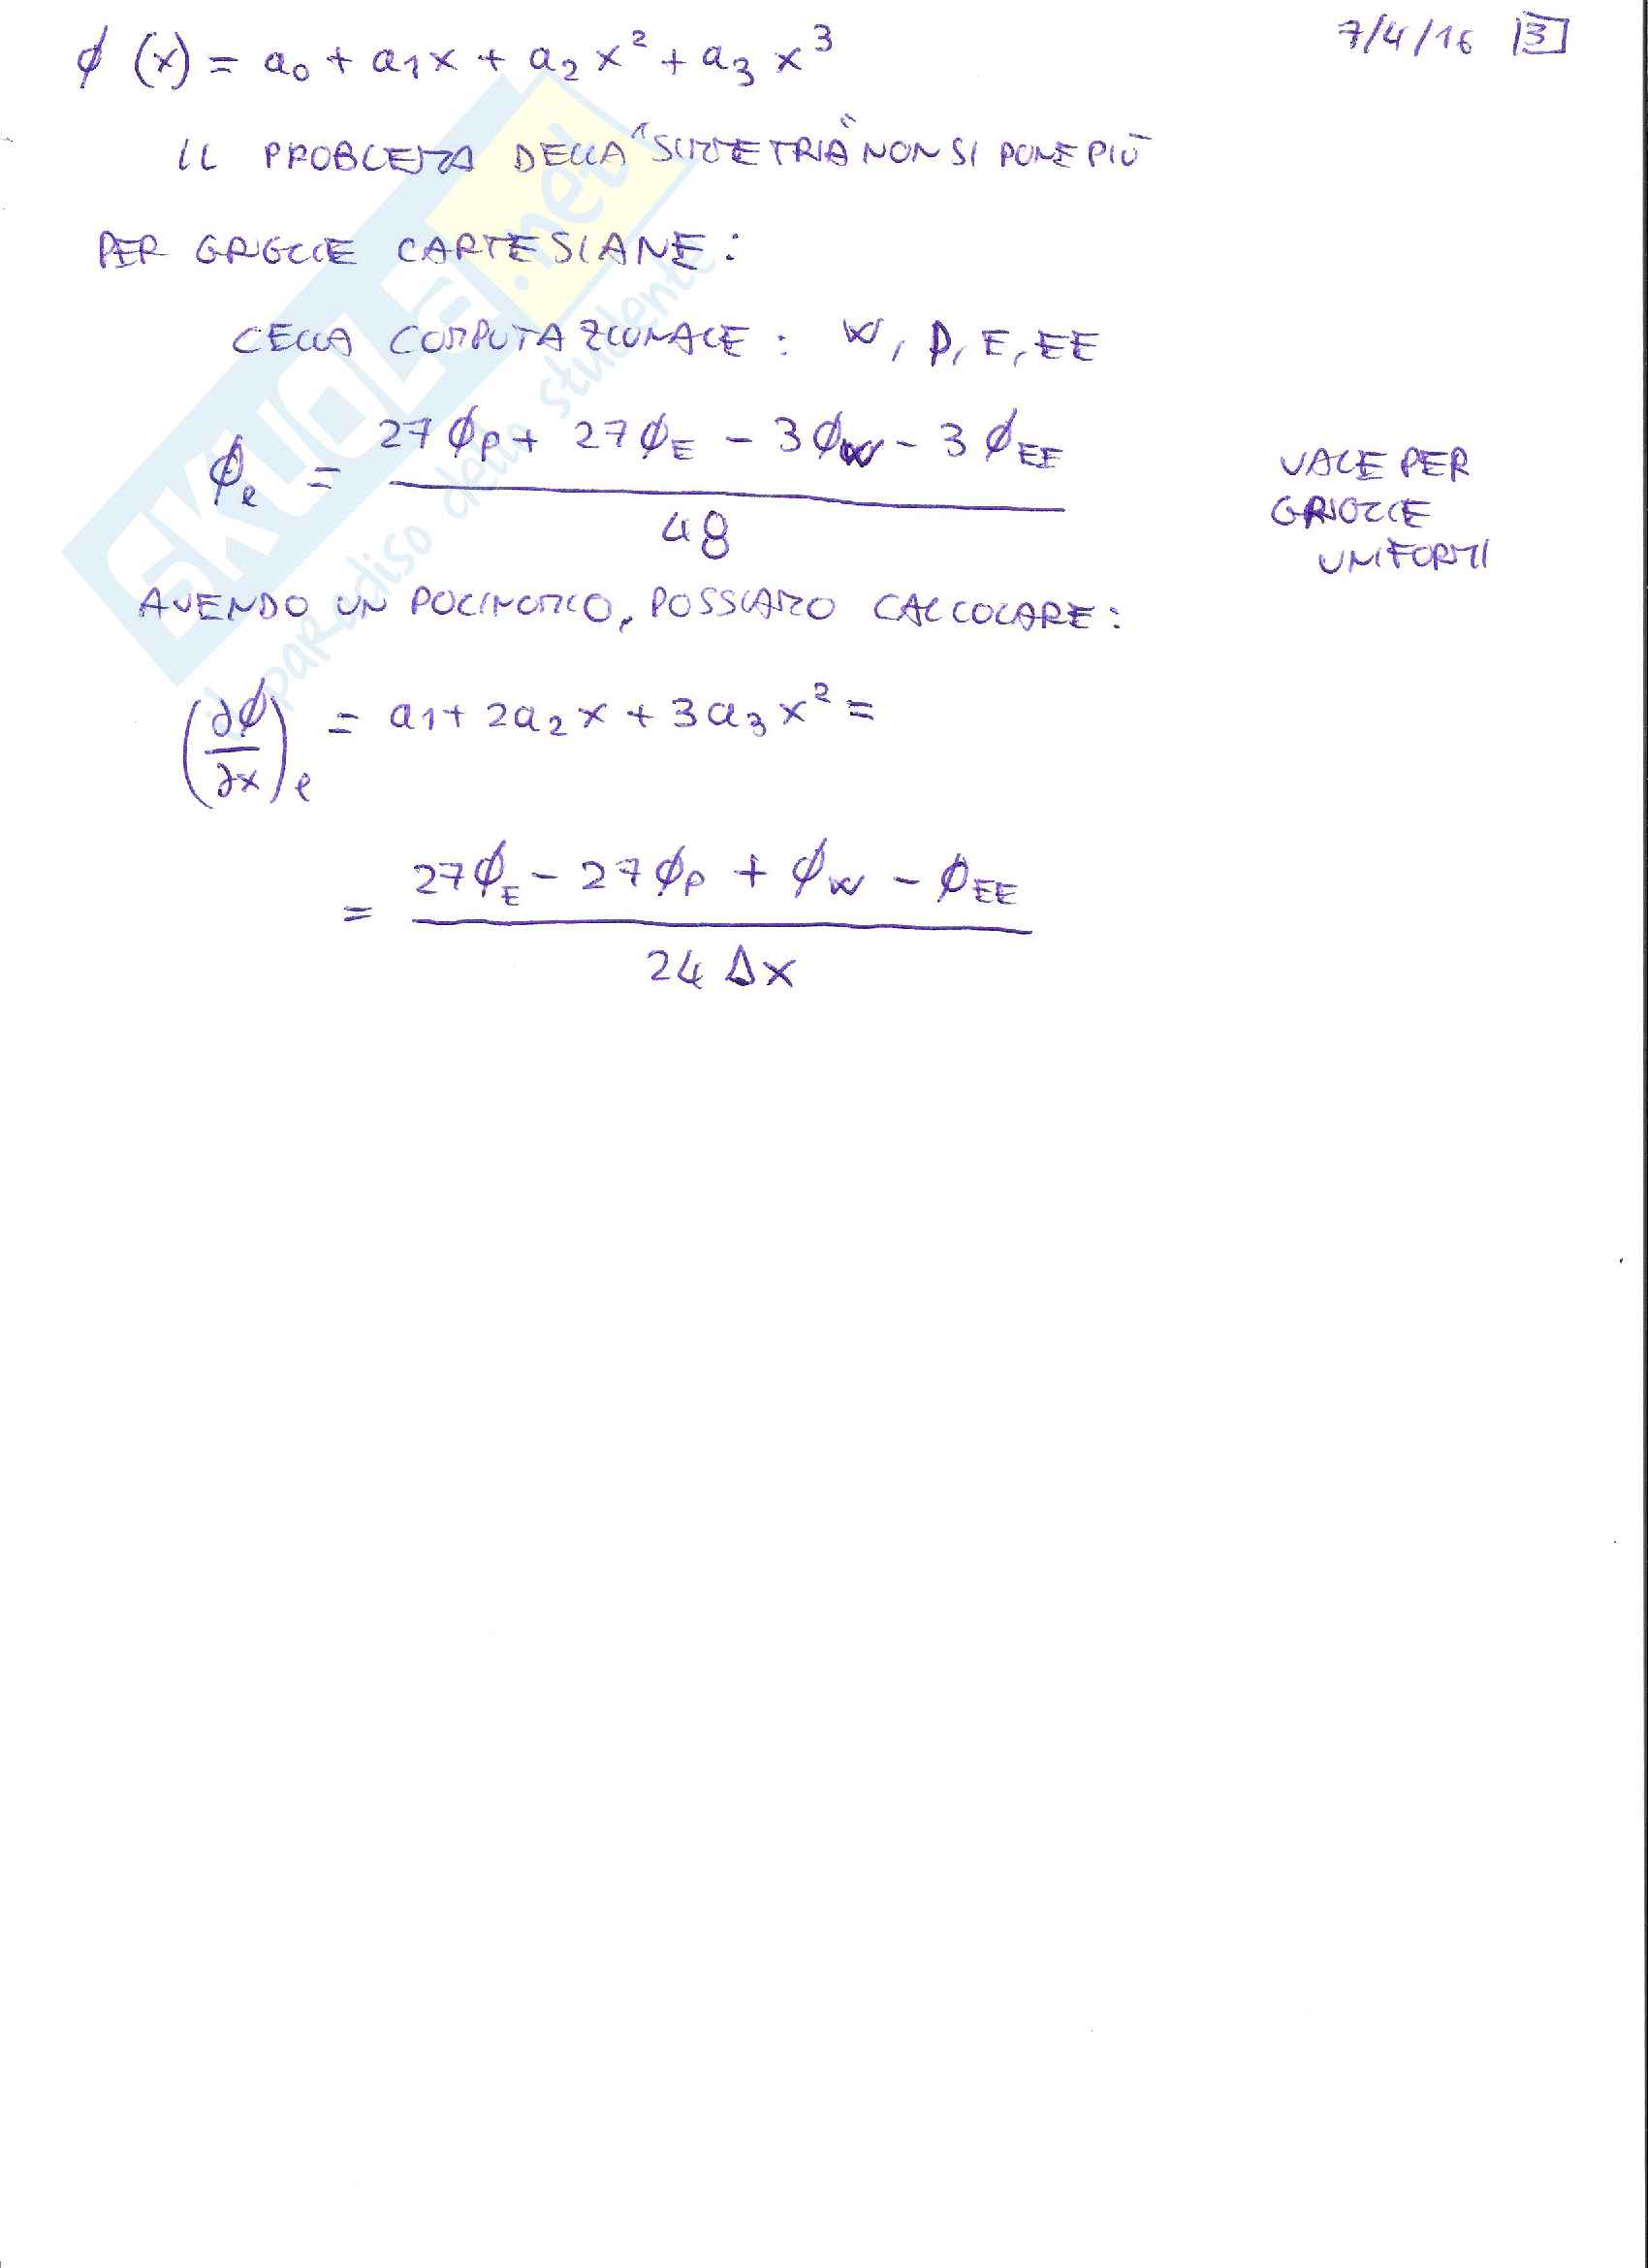 7/4/16 3
ϕ (x) = a₀ + a₁x + a₂x² + a₃x³
IL PROBLEMA DELLA "SIMMETRIA" NON SI PONE PIÙ
PER GRIGLIE CARTESIANE:
CELLA COMPUTAZIONALE: W, P, E, EE
ϕₑ = (27ϕ_P + 27ϕ_E - 3ϕ_W - 3ϕ_EE) / 48
VALE PER
GRIGLIE
UNIFORMI
AVENDO UN POLINOMIO, POSSIAMO CALCOLARE:
(∂ϕ/∂x)ₑ = a₁ + 2a₂x + 3a₃x² =
= (27ϕ_E - 27ϕ_P + ϕ_W - ϕ_EE) / 24 Δx
SKUOLa.net
il paradiso dello studente